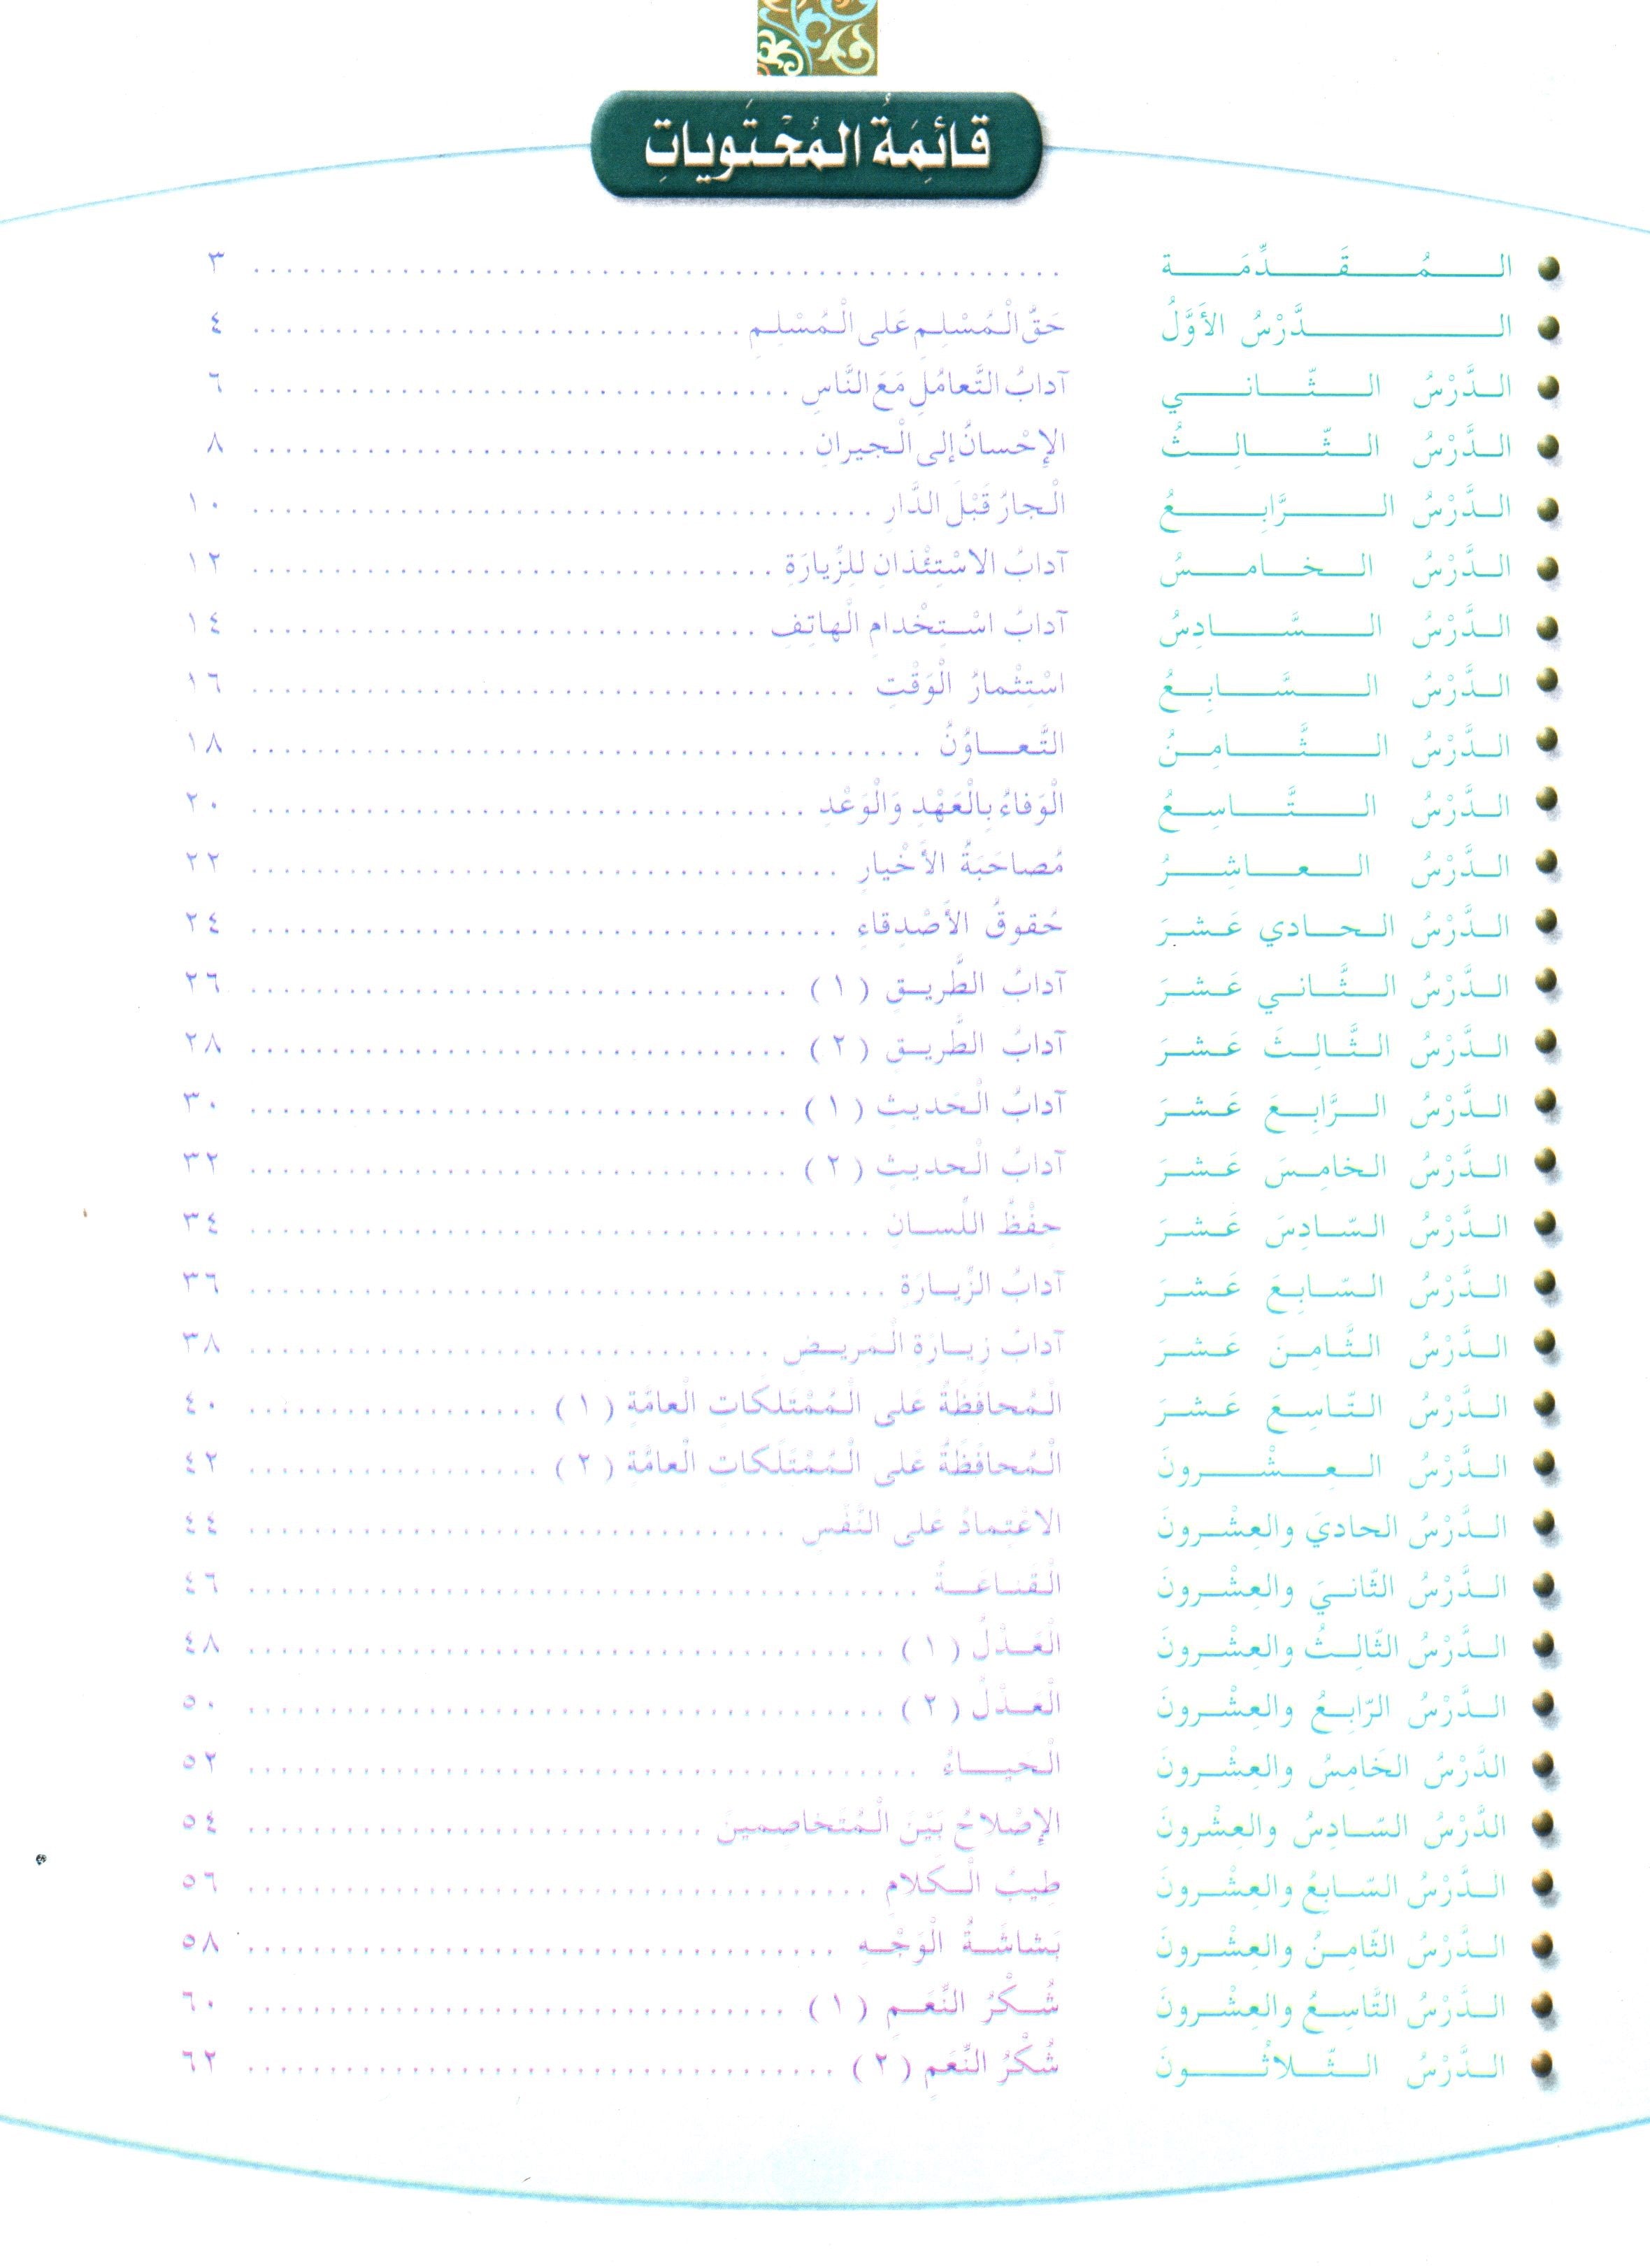 قائِمَةُ المُحْتَوياتِ
المُقَدِّمَة ٣
الدَّرْسُ الأَوَّلُ حَقُّ الْمُسْلِمِ عَلى الْمُسْلِمِ ٤
الدَّرْسُ الثّاني آدابُ التَّعامُلِ مَعَ النَّاسِ ٦
الدَّرْسُ الثّالِثُ الإِحْسانُ إلى الْجيرانِ ٨
الدَّرْسُ الرَّابِعُ الْجارُ قَبْلَ الدَّارِ ١٠
الدَّرْسُ الخامسُ آدابُ الاسْتِئْذانِ لِلزِّيارَةِ ١٢
الدَّرْسُ السَّادِسُ آدابُ اسْتِخْدامِ الْهاتِفِ ١٤
الدَّرْسُ السَّابِعُ اسْتِثْمارُ الْوَقْتِ ١٦
الدَّرْسُ الثَّامِنُ التَّعاوُنُ ١٨
الدَّرْسُ التَّاسِعُ الْوَفاءُ بِالْعَهْدِ وَالْوَعْدِ ٢٠
الدَّرْسُ العاشِرُ مُصاحَبَةُ الأَخْيارِ ٢٢
الدَّرْسُ الحادي عَشرَ حُقوقُ الأَصْدِقاءِ ٢٤
الدَّرْسُ الثَّاني عَشرَ آدابُ الطَّريقِ (١) ٢٦
الدَّرْسُ الثَّالِثَ عَشرَ آدابُ الطَّريقِ (٢) ٢٨
الدَّرْسُ الرَّابِعَ عَشرَ آدابُ الْحَديثِ (١) ٣٠
الدَّرْسُ الخامِسَ عَشرَ آدابُ الْحَديثِ (٢) ٣٢
الدَّرْسُ السّادِسَ عَشرَ حِفْظُ اللِّسانِ ٣٤
الدَّرْسُ السّابِعَ عَشرَ آدابُ الزِّيارَةِ ٣٦
الدَّرْسُ الثَّامِنَ عَشرَ آدابُ زِيارَةِ الْمَريضِ ٣٨
الدَّرْسُ التّاسِعَ عَشرَ الْمُحافَظَةُ عَلى الْمُمْتَلَكاتِ الْعامَّةِ (١) ٤٠
الدَّرْسُ العِشْرونَ الْمُحافَظَةُ عَلى الْمُمْتَلَكاتِ الْعامَّةِ (٢) ٤٢
الدَّرْسُ الحادِيَ والعِشْرونَ الاعْتِمادُ عَلى النَّفْسِ ٤٤
الدَّرْسُ الثّانيَ والعِشْرونَ الْقَناعَةُ ٤٦
الدَّرْسُ الثّالِثُ والعِشْرونَ الْعَدْلُ (١) ٤٨
الدَّرْسُ الرّابِعُ والعِشْرونَ الْعَدْلُ (٢) ٥٠
الدَّرْسُ الخَامِسُ والعِشْرونَ الْحَياءُ ٥٢
الدَّرْسُ السّادِسُ والعِشْرونَ الإِصْلاحُ بَيْنَ الْمُتَخاصِمينَ ٥٤
الدَّرْسُ السّابِعُ والعِشْرونَ طيبُ الْكَلامِ ٥٦
الدَّرْسُ الثّامِنُ والعِشْرونَ بَشاشَةُ الْوَجْهِ ٥٨
الدَّرْسُ التَّاسِعُ والعِشْرونَ شُكْرُ النِّعَمِ (١) ٦٠
الدَّرْسُ الثّلاثْونَ شُكْرُ النِّعَمِ (٢) ٦٢